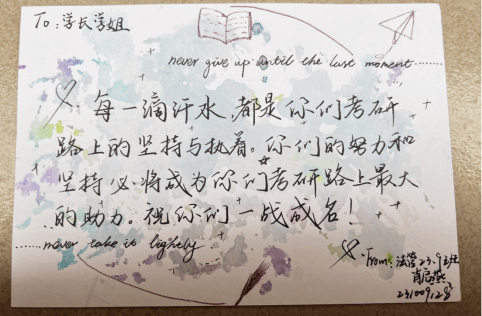 To:学长学姐
never give up until the last moment......
每一滴汗水,都是你们考研
路上的坚持与执着。你们的努力和
坚持必将成为你们考研路上最大
的助力。祝你们一战成名!
......never take it lightly
From:法管23.9班